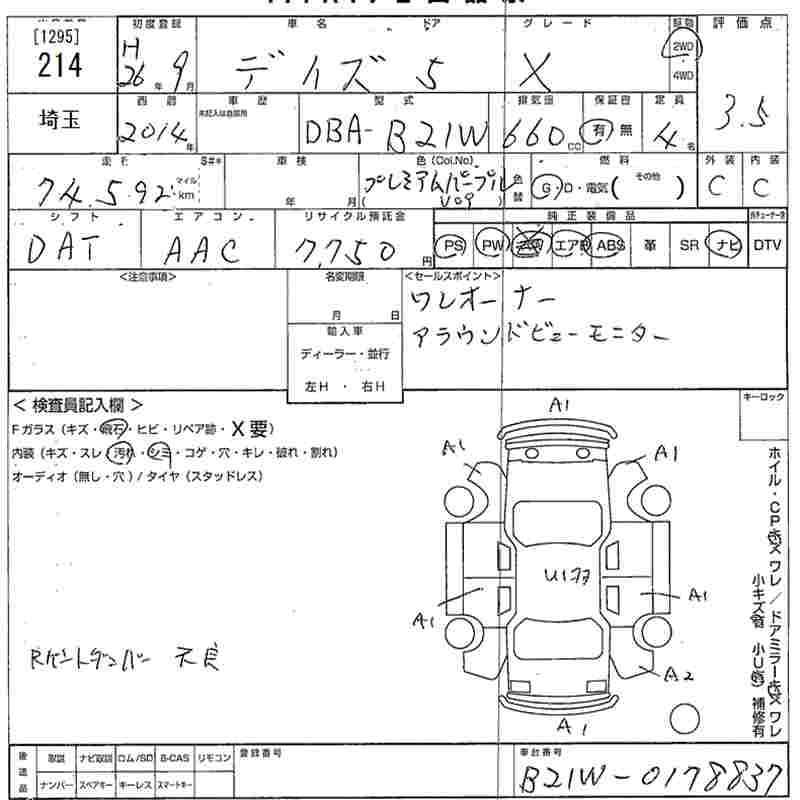 [1295]
214
初度登録
H 26年 9月
車名 ドア
デイズ 5
グレード
X
駆動
2WD
4WD
評価点
3.5
埼玉
西暦
2014年
車歴
未記入は自家用
型式
DBA-B21W
排気量
660 CC
保証書
有 無
定員
4名
走行 S#*
74,592 マイル km
車検
年 月
色 (Col.No)
プレミアムパープル
( V09 )
色替
燃料
G・D・電気( その他 )
外装
C
内装
C
シフト
DAT
エアコン
AAC
リサイクル預託金
7,750 円
純正装備品
PS PW エアB ABS 革 SR ナビ
DTV
<注意事項>
名変期限
月 日
輸入車
ディーラー・並行
左H ・ 右H
<セールスポイント>
ワンオーナー
アラウンドビューモニター
< 検査員記入欄 >
Fガラス (キズ・飛石・ヒビ・リペア跡・X要)
内装 (キズ・スレ・汚れ・シミ・コゲ・穴・キレ・破れ・割れ)
オーディオ (無し・穴) / タイヤ (スタッドレス)
キーロック
A1
A1
A1
U1
A1
A1
A2
A1
ホイル・CPキズ ワレ / ドアミラーキズ ワレ
小キズ有 小U有 補修有
Rゲートダンパー 不良
後送品
取説 ナビ取説 ロム/SD B-CAS リモコン
ナンバー スペアキー キーレス スマートキー
登録番号
車台番号
B21W-0178837